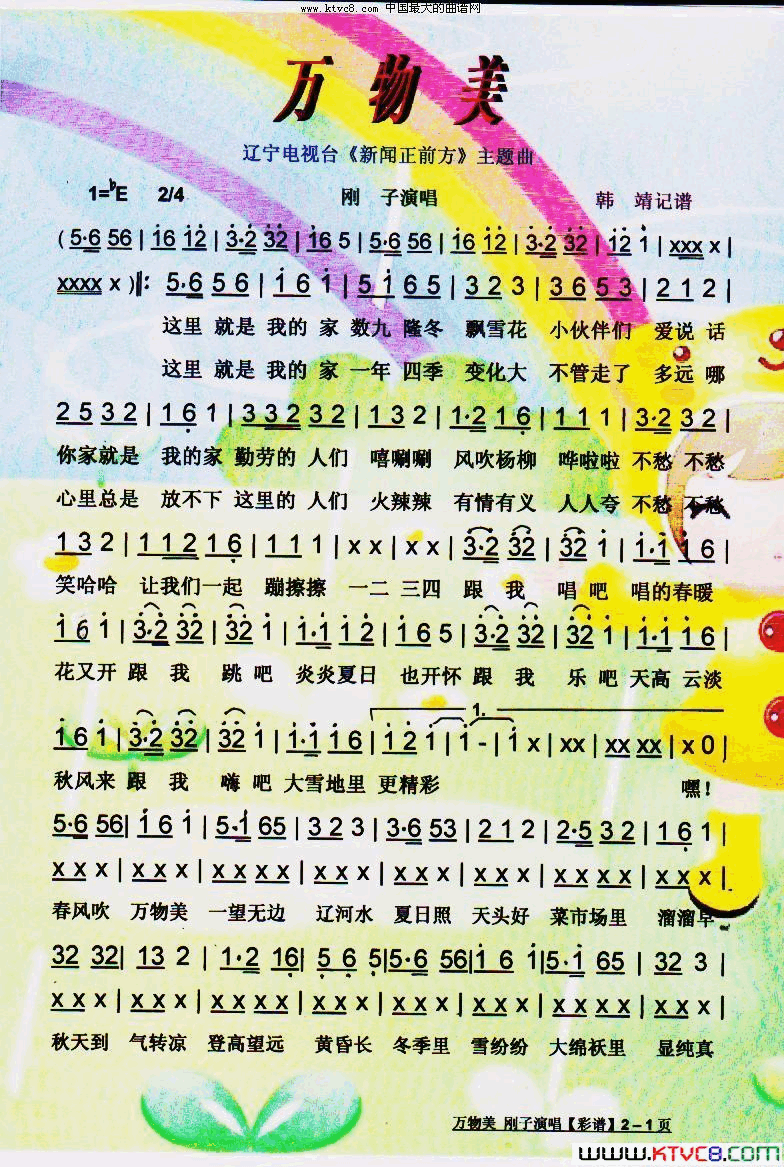 www.ktvc8.com 中国最大的曲谱网
万物美
辽宁电视台《新闻正前方》主题曲
1=♭E 2/4 刚 子演唱 韩 靖记谱
(5·6 56 | i6 i2 | 3·2 32 | i6 5 | 5·6 56 | i6 i2 | 3·2 32 | i2 i | xxx x |
xxxx x )‖: 5·6 5 6 | i 6 i | 5 i 6 5 | 3 2 3 | 3 6 5 3 | 2 1 2 |
这里 就是 我的 家 数九 隆冬 飘雪花 小伙伴们 爱说 话
这里 就是 我的 家 一年 四季 变化大 不管走了 多远 哪
2 5 3 2 | 1 6 1 | 3 3 2 3 2 | 1 3 2 | 1·2 1 6 | 1 1 1 | 3·2 3 2 |
你家就是 我的家 勤劳的 人们 嘻唰唰 风吹杨柳 哗啦啦 不愁 不愁
心里总是 放不下 这里的 人们 火辣辣 有情有义 人人夸 不愁 不愁
1 3 2 | 1 1 2 1 6 | 1 1 1 | x x | x x | 3·2 3 2 | 3 2 i | i·i i 6 |
笑哈哈 让我们一起 蹦擦擦 一二 三四 跟 我 唱 吧 唱的春暖
i 6 i | 3·2 32 | 32 i | i·i i 2 | i 6 5 | 3·2 32 | 32 i | i·i i 6 |
花又开 跟 我 跳 吧 炎炎夏日 也开怀 跟 我 乐 吧 天高 云淡
1.
i 6 i | 3·2 32 | 32 i | i·i i 6 | i 2 i | i - | i x | xx x | xx xx | x 0 |
秋风来 跟 我 嗨 吧 大雪地里 更精彩 嘿!
5·6 56 | i 6 i | 5·i 65 | 3 2 3 | 3·6 53 | 2 1 2 | 2·5 3 2 | 1 6 1 |
x x x | x x x | x x x x | x x x | x x x | x x x | x x x x | x x x |
春风吹 万物美 一望无边 辽河水 夏日照 天头好 菜市场里 溜溜早
32 32 | 13 2 | 1·2 16 | 5 6 5 | 5·6 56 | i 6 i | 5·i 65 | 32 3 |
x x x | x x x | x x x x | x x x | x x x | x x x | x x x x | x x x |
秋天到 气转凉 登高望远 黄昏长 冬季里 雪纷纷 大绵袄里 显纯真
万物美 刚子演唱【彩谱】2－1页
www.KTVC8.com